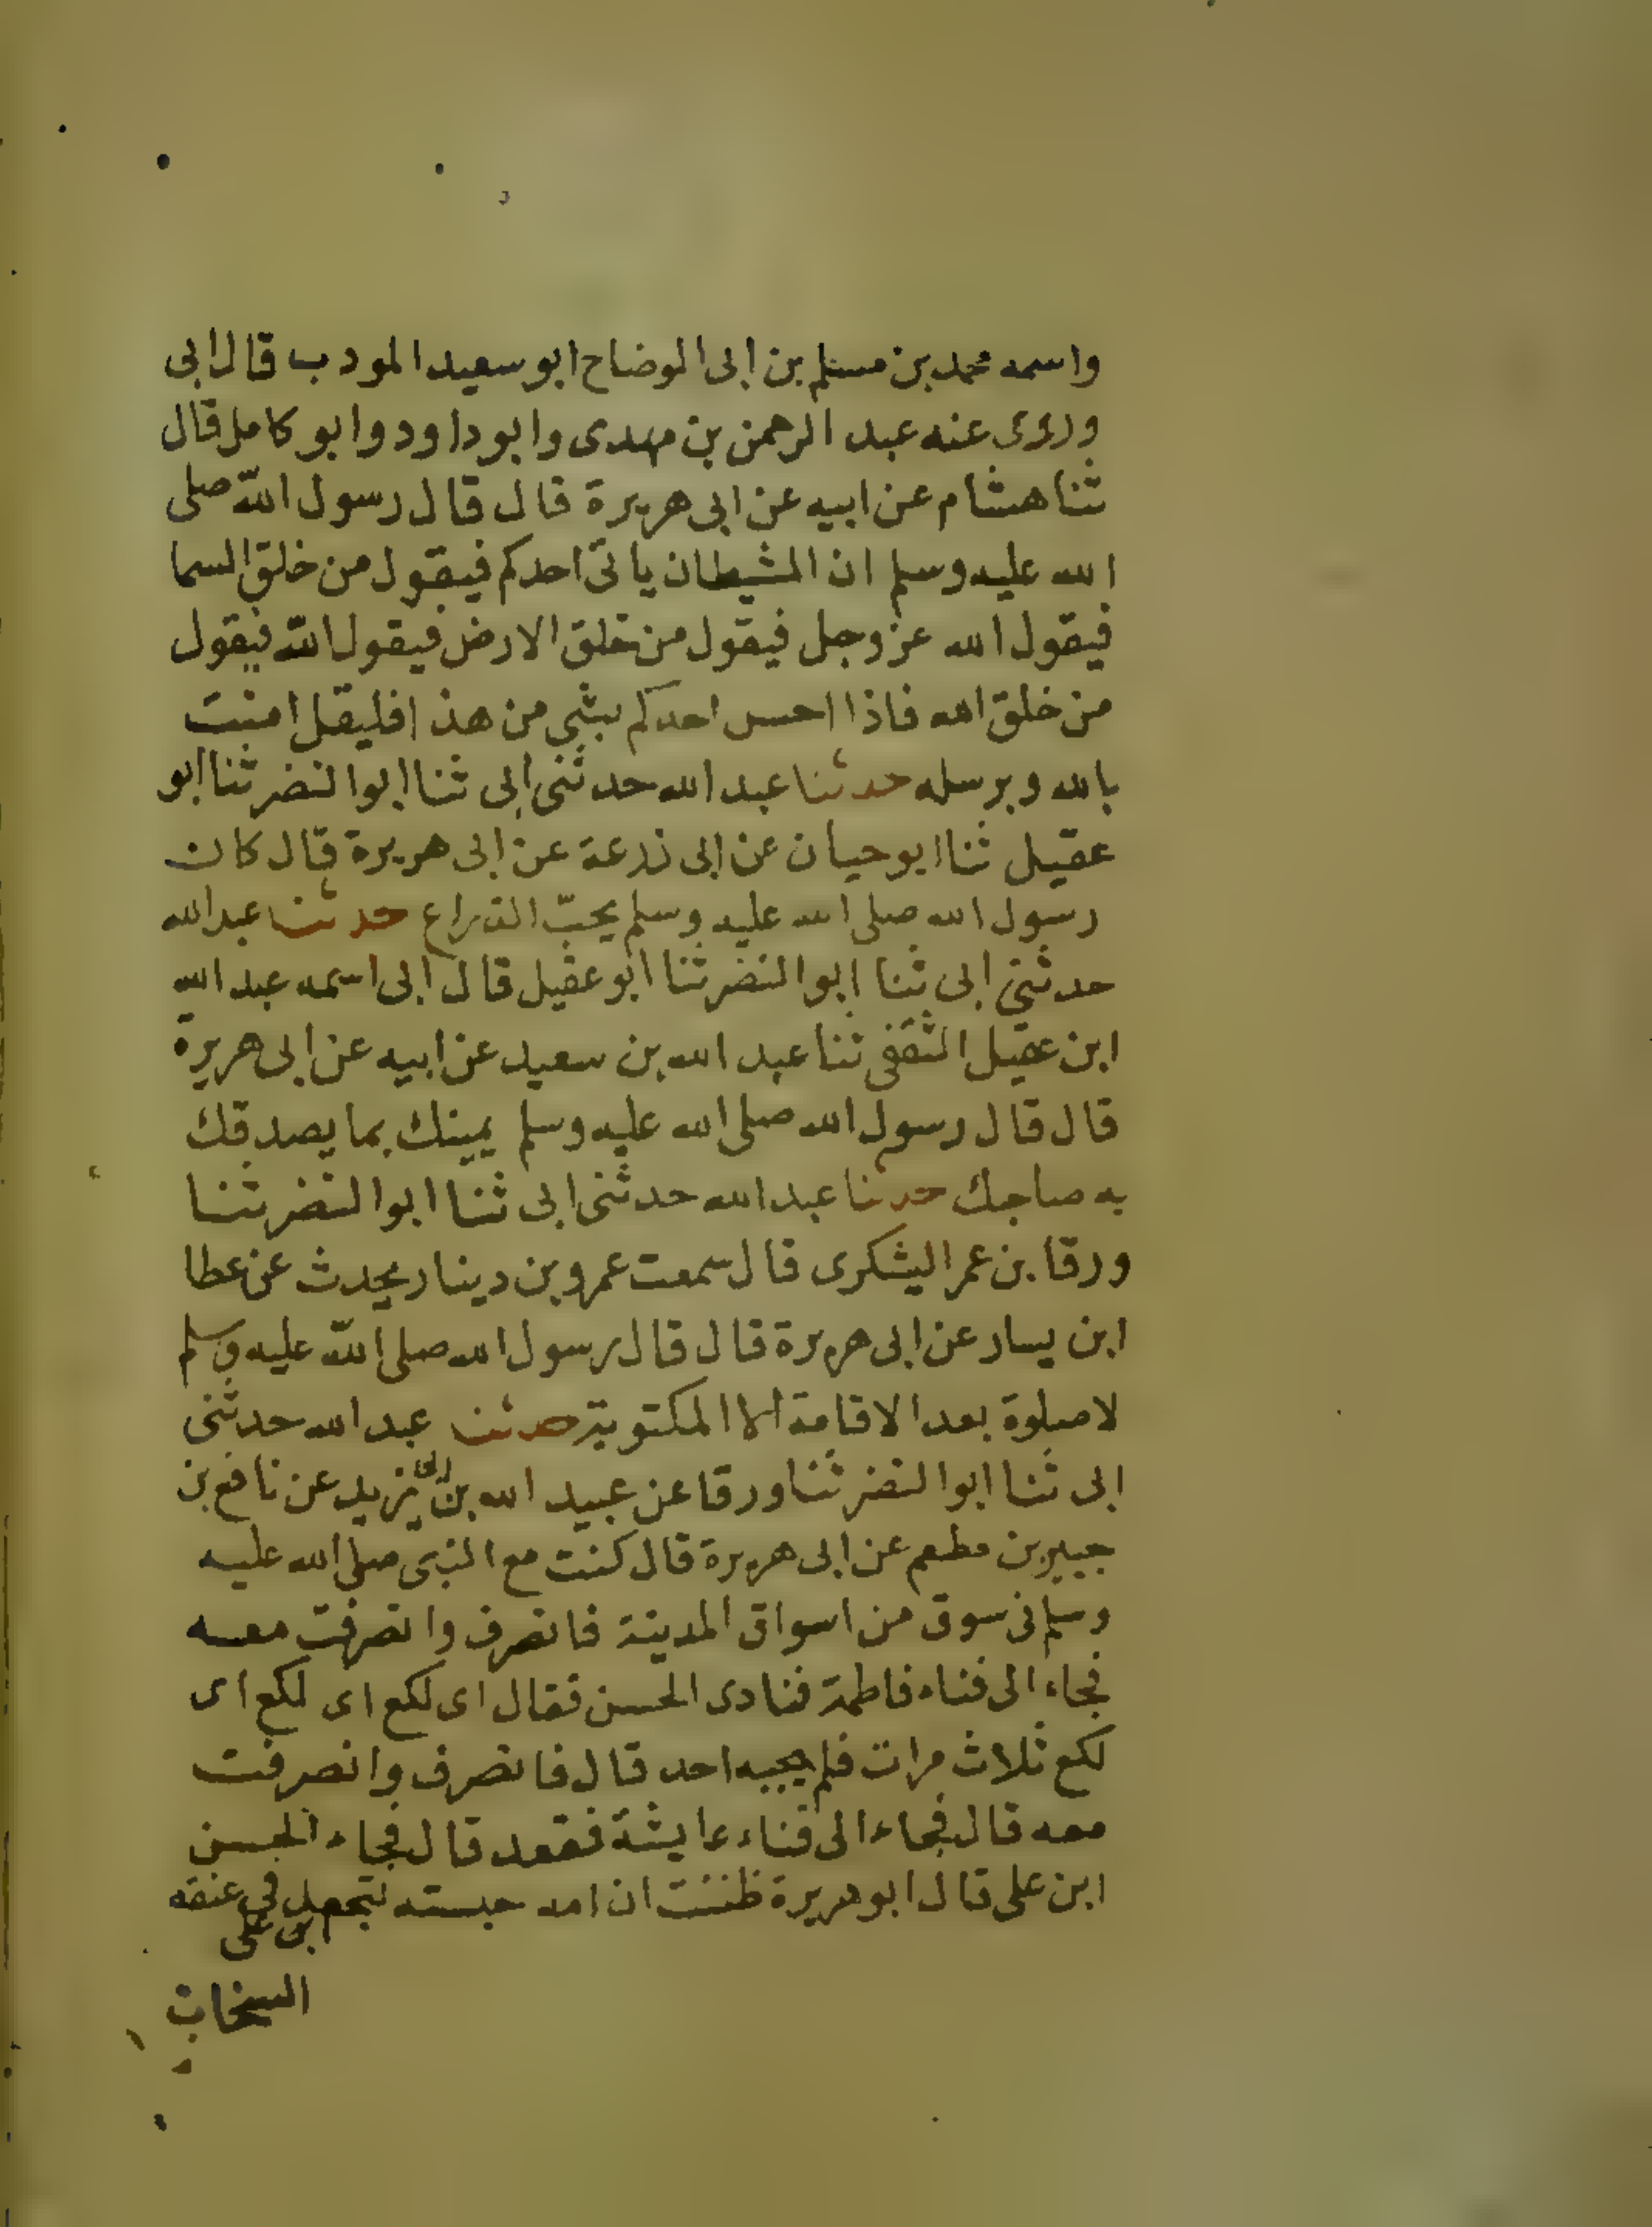 واسمه محمد بن مسلم بن ابى الوضاح ابو سعيد المودب قال ابى
وروى عنه عبد الرحمن بن مهدى وابو داود وابو كامل قال
ثنا هشام عن ابيه عن ابى هريرة قال قال رسول الله صلى
الله عليه وسلم ان الشيطان ياتى احدكم فيقول من خلق السما
فيقول الله عز وجل فيقول من خلق الارض فيقول الله فيقول
من خلق الله فاذا احس احدكم بشى من هذا فليقل امنت
بالله وبرسله حدثنا عبد الله حدثنى ابى ثنا ابو النضر ثنا ابو
عقيل ثنا ابو حيان عن ابى زرعة عن ابى هريرة قال كان
رسول الله صلى الله عليه وسلم يحبّ الذراع حدثنا عبد الله
حدثنى ابى ثنا ابو النضر ثنا ابو عقيل قال ابى اسمه عبد الله
ابن عقيل الثقفى ثنا عبد الله بن سعيد عن ابيه عن ابى هريرة
قال قال رسول الله صلى الله عليه وسلم يمينك بما يصدقك
به صاحبك حدثنا عبد الله حدثنى ابى ثنا ابو النضر ثنا
ورقا بن عمر اليشكرى قال سمعت عمرو بن دينار يحدث عن عطا
ابن يسار عن ابى هريرة قال قال رسول الله صلى الله عليه وسلم
لا صلوة بعد الاقامة الا المكتوبة حدثنا عبد الله حدثنى
ابى ثنا ابو النضر ثنا ورقا عن عبيد الله بن ابى يزيد عن نافع بن
جبير بن مطعم عن ابى هريرة قال كنت مع النبى صلى الله عليه
وسلم فى سوق من اسواق المدينة فانصرف وانصرفت معه
فجاء الى فناء فاطمة فنادى الحسن فقال اى لكع اى لكع اى
لكع ثلاث مرات فلم يجبه احد قال فانصرف وانصرفت
معه قال فجاء الى فناء عايشة فقعد قال فجاء الحسن
ابن على قال ابو هريرة ظننت ان امه حبسته لتجعل فى عنقه
بن على
السخاب